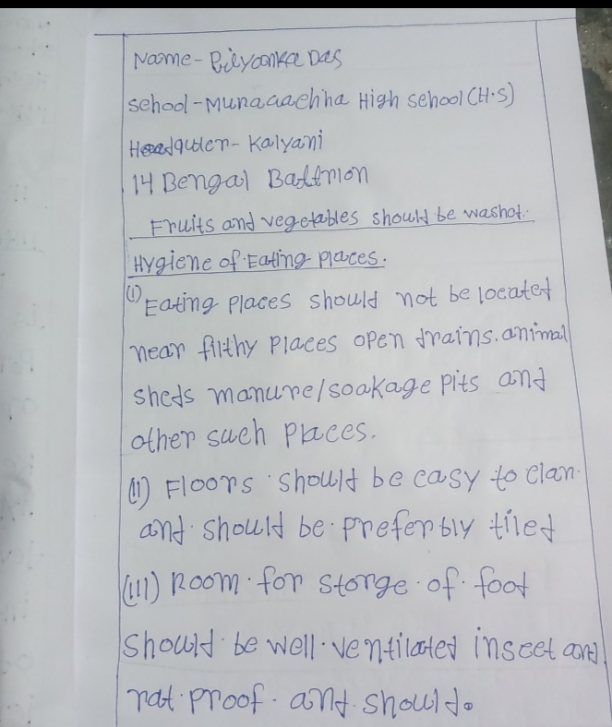 Name - Priyanka Das
School - Munagachha High school (H.S)
Headquter - Kalyani
14 Bengal Battnion
Fruits and vegetables should be washot.
Hygiene of Eating places.
(I) Eating places should not be located
near filthy places open drains. animal
sheds manure/soakage pits and
other such places.
(II) Floors should be easy to clan
and should be preferbly tiled
(III) Room for storge of food
should be well ventilated insect and
rat proof and should.